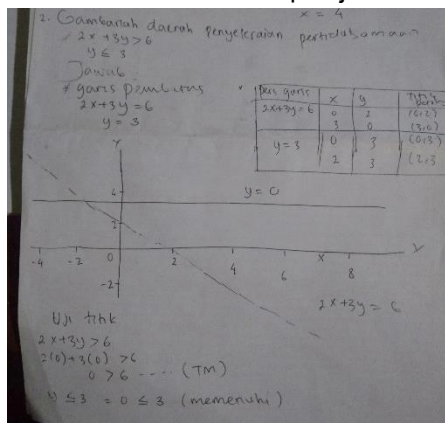 x = 4
2. Gambarlah daerah penyelesaian pertidaksamaan
2x + 3y > 6
y ≤ 3
Jawab
* garis pembatas
2x + 3y = 6
y = 3
pers garis x y
2x+3y=6 0 2 (0,2)
3 0 (3,0)
y = 3 0 3 (0,3)
2 3 (2,3
Y
4
y = 0
2
-4 -2 0 2 4 6 x 8
-2
2x + 3y = 6
Uji titik
2x + 3y > 6
2(0)+3(0) > 6
0 > 6 .... (TM)
y ≤ 3 = 0 ≤ 3 (memenuhi)